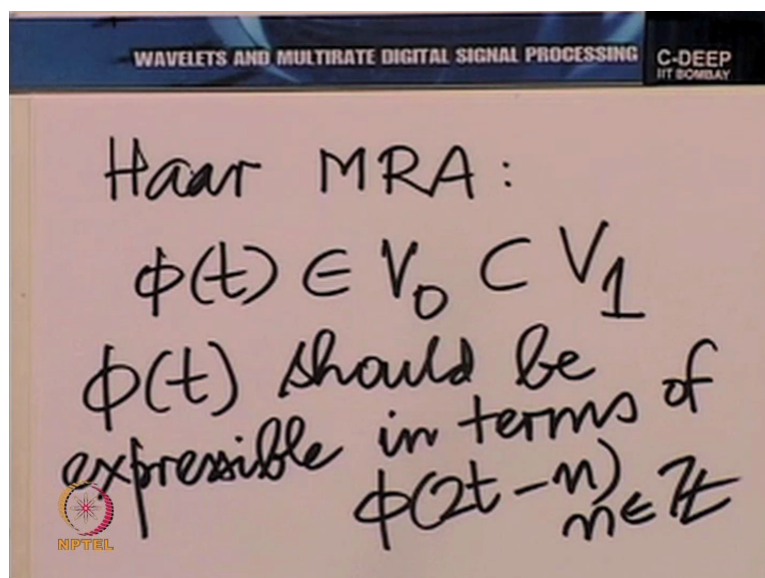 WAVELETS AND MULTIRATE DIGITAL SIGNAL PROCESSING
C-DEEP
IIT BOMBAY
Haar MRA:
ϕ(t) ∈ V₀ ⊂ V₁
ϕ(t) should be
expressible in terms of
ϕ(2t-n)
n ∈ ℤ
NPTEL